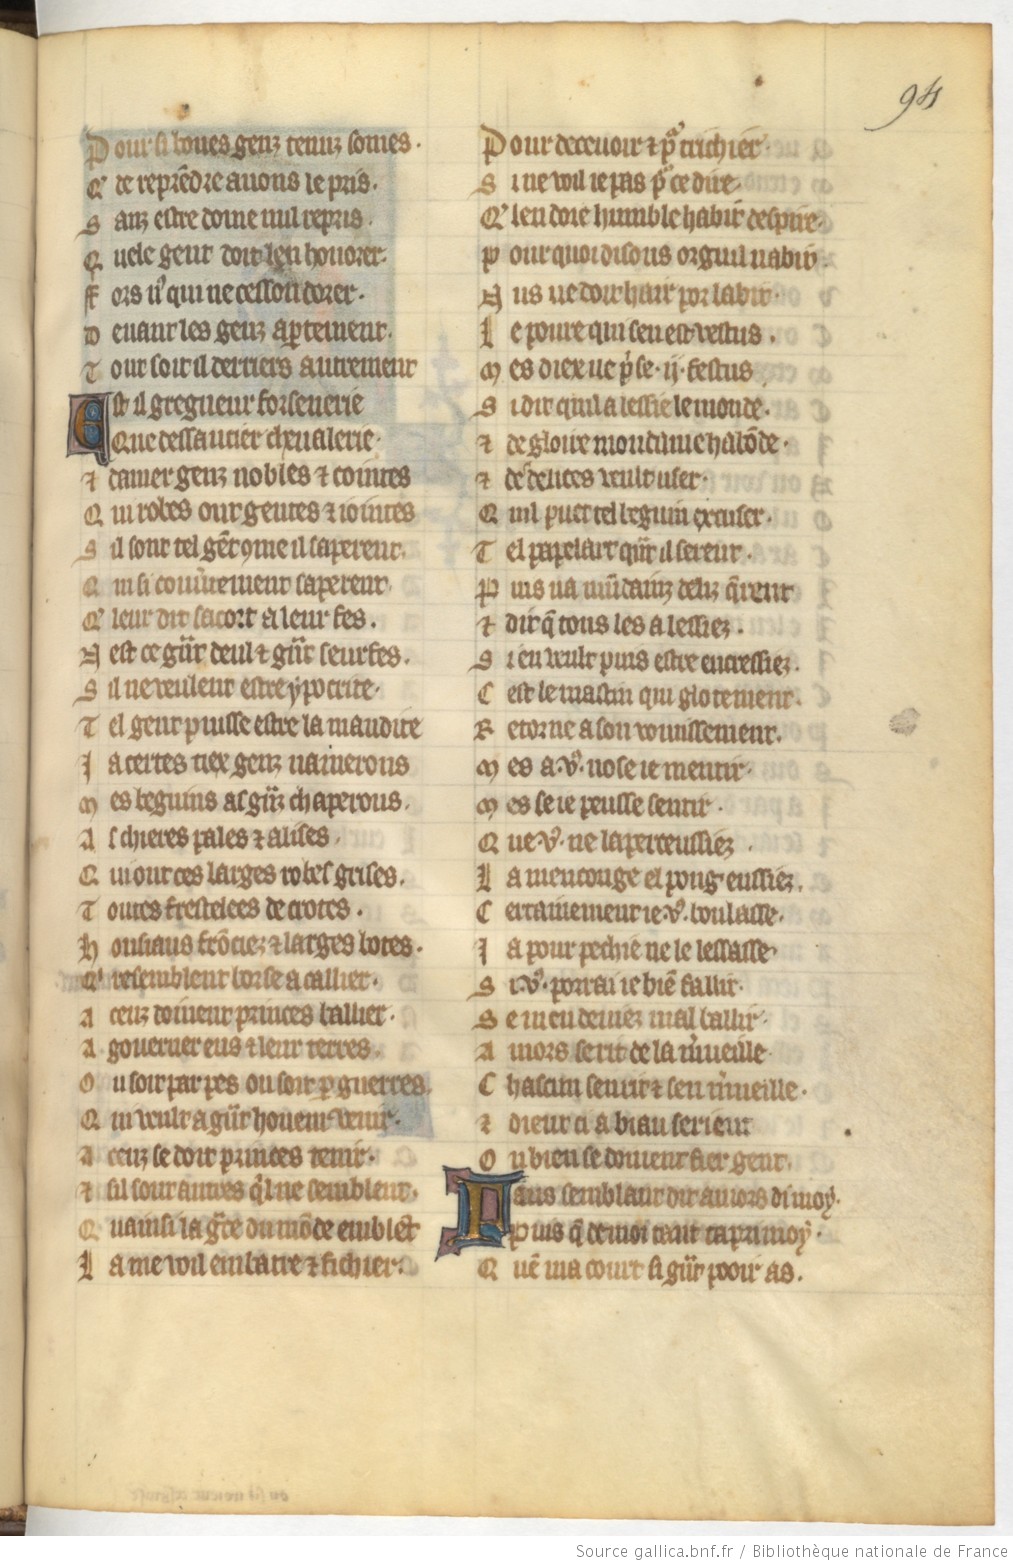 94
Pour si bones genz tenuz somes.
Q' de reprēdre auons le pris.
Sanz estre dome nul repris.
Quele gent doit len honorer.
ffors n' qui ne cesson dorer.
Deuant les genz aꝑtement.
Tout soit il derriers autrement
Est il gregneur forsenerie
Que dessaucier cheualerie.
⁊ damer genz nobles ⁊ cointes
Qui robes ont gentes ⁊ iointes
Sil sont tel gēt 9me il saperent.
Qui si conuinement saperent.
Q' leur dit sacort a leur fes.
Nest ce gr̄t deul ⁊ gr̄t seurfes.
Sil ne veulent estre ypocrite.
Tel gent puisse estre la maudite
Ja certes tiex genz namerons
Mes beguins as grz̄ chaperons.
As chieres pales ⁊ alises.
Qui ont ces larges robes grises.
Toutes frestelees de crotes.
Housiaus frōciez ⁊ larges botes.
Q' resemblent borse a callier.
A ceuz doiuent princes ballier.
A gouerner eus ⁊ leur terres.
Ou soit par pes ou soit ꝑ guerres.
Qui veult a gr̄t honeur venir.
A ceuz se doit princes tenir.
⁊ sil sont autres q̄l ne semblent.
Quainsi la gr̄ce du mōde emblēt
La me voil embatre ⁊ fichier.
Pour deceuoir ⁊ pͣ trichier.
Si ne voil ie pas pͣ ce dire.
Q' len doie humble habit despire.
Pour quoi disons orguil nabit.
Nus ne doit hair por labit.
Le poure qui sen est vestus.
Mes diex ne p'se .ij. festus
Si dit quil a lessie le monde.
⁊ de gloire mondaine habōde.
⁊ de delices veult user.
Qui puet tel beguin excuser.
Tel papelart qn̄t il se rent.
Puis va mūdainz deliz q̄rent
⁊ dit q̄ tous les a lessiez.
Si en veult puis estre encressiez.
Cest le mastin qui glotement.
Retorne a son vomissement.
Mes a .v'. nose ie mentir.
Mes se ie peusse sentir.
Que .v'. ne laperceussiez.
La mencouge el poug eussiez.
Certainement ie .v'. boulasse.
Ja pour pechie ne le lessasse.
Si .v'. porrai ie biē fallir.
Se men deuiez mal ballir.
Amors se rit de la m'ueille
Chascun sen rit ⁊ sen m'ueille.
⁊ dient ci a biau serient
Ou bien se doiuent fier gent.
Faus semblant dit amors di moy.
Puis q̄ de moi tant tapri moy.
Quē ma court si gr̄t pooir as.
Source gallica.bnf.fr / Bibliothèque nationale de France